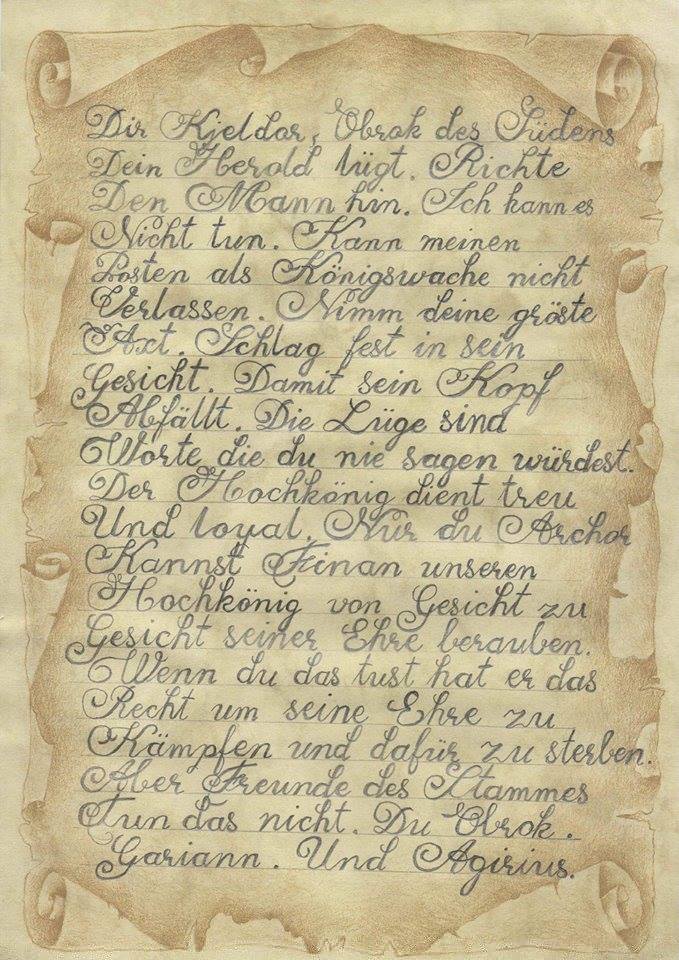 Dir Kjeldor, Obrok des Südens
Dein Herold lügt. Richte
Den Mann hin. Ich kann es
Nicht tun. Kann meinen
Posten als Königswache nicht
Verlassen. Nimm deine gröste
Axt. Schlag fest in sein
Gesicht. Damit sein Kopf
Abfällt. Die Lüge sind
Worte die du nie sagen würdest.
Der Hochkönig dient treu
Und loyal. Nur du Archor
Kannst Finan unseren
Hochkönig von Gesicht zu
Gesicht seiner Ehre berauben.
Wenn du das tust hat er das
Recht um seine Ehre zu
Kämpfen und dafür zu sterben.
Aber Freunde des Stammes
Tun das nicht. Du Obrok.
Gariann. Und Agirius.